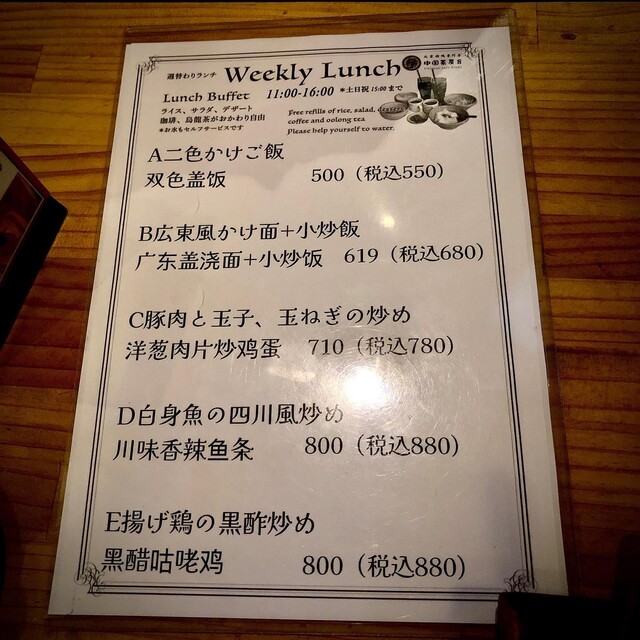 週替わりランチ Weekly Lunch
中国茶房8
Lunch Buffet 11:00-16:00 *土日祝 15:00まで
ライス、サラダ、デザート
珈琲、烏龍茶がおかわり自由
*お水もセルフサービスです
Free refills of rice, salad, dessert,
coffee and oolong tea
Please help yourself to water.
A二色かけご飯
双色盖饭 500（税込550）
B広東風かけ面+小炒飯
广东盖浇面+小炒饭 619（税込680）
C豚肉と玉子、玉ねぎの炒め
洋葱肉片炒鸡蛋 710（税込780）
D白身魚の四川風炒め
川味香辣鱼条 800（税込880）
E揚げ鶏の黒酢炒め
黑醋咕咾鸡 800（税込880）